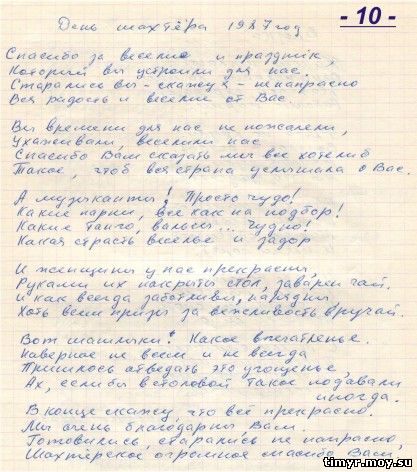 - 10 -
День шахтёра 1987 год
Спасибо за веселие и праздник,
Который вы устроили для нас.
Старались вы - скажу я - не напрасно
Вся радость и веселие от Вас.
Вы времени для нас не пожалели,
Ухаживали, веселили нас
Спасибо Вам сказать мы все хотели б
Такое, чтоб вся страна услышала о Вас.
А музыканты! Просто чудо!
Какие парни, все как на подбор!
Какие танго, вальсы... Чудно!
Какая страсть веселье и задор
И женщины у нас прекрасны,
Руками их накрыты стол, заварен чай.
и как всегда заботливы, нарядны
Хоть всем призы за вежливость вручай.
Вот шашлыки! Какое впечатленье.
Наверное не всем и не всегда
Пришлось отведать это угощенье,
Ах, если бы в столовой такое подавали
иногда.
В конце скажу, что всё прекрасно.
Мы очень благодарны Вам.
Готовились, старались не напрасно,
Шахтёрское огромное спасибо Вам.
timyr.moy.su